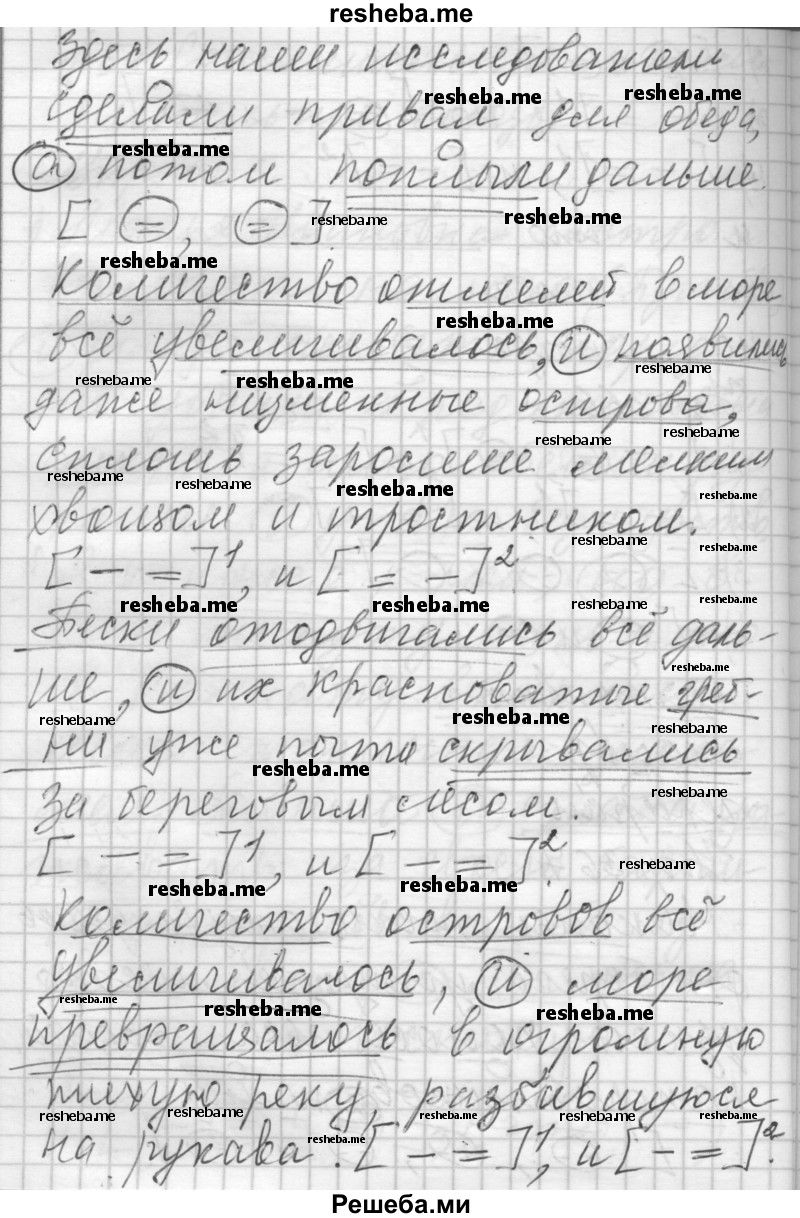 resheba.me
Здесь наши исследователи
сделали привал для обеда,
а потом поплыли дальше.
[ =, = ].
Количество отмелей в море
всё увеличивалось, и появились
даже низменные острова,
сплошь заросшие мелким
хвощом и тростником.
[ — = ]1, и [ = — ]2.
Пески отодвигались всё даль-
ше, и их красноватые греб-
ни уже почти скрывались
за береговым лесом.
[ — = ]1, и [ — = ]2.
Количество островов всё
увеличивалось, и море
превращалось в огромную
тихую реку, разбившуюся
на рукава. [ — = ]1, и [ — = ]2.
Решеба.ми